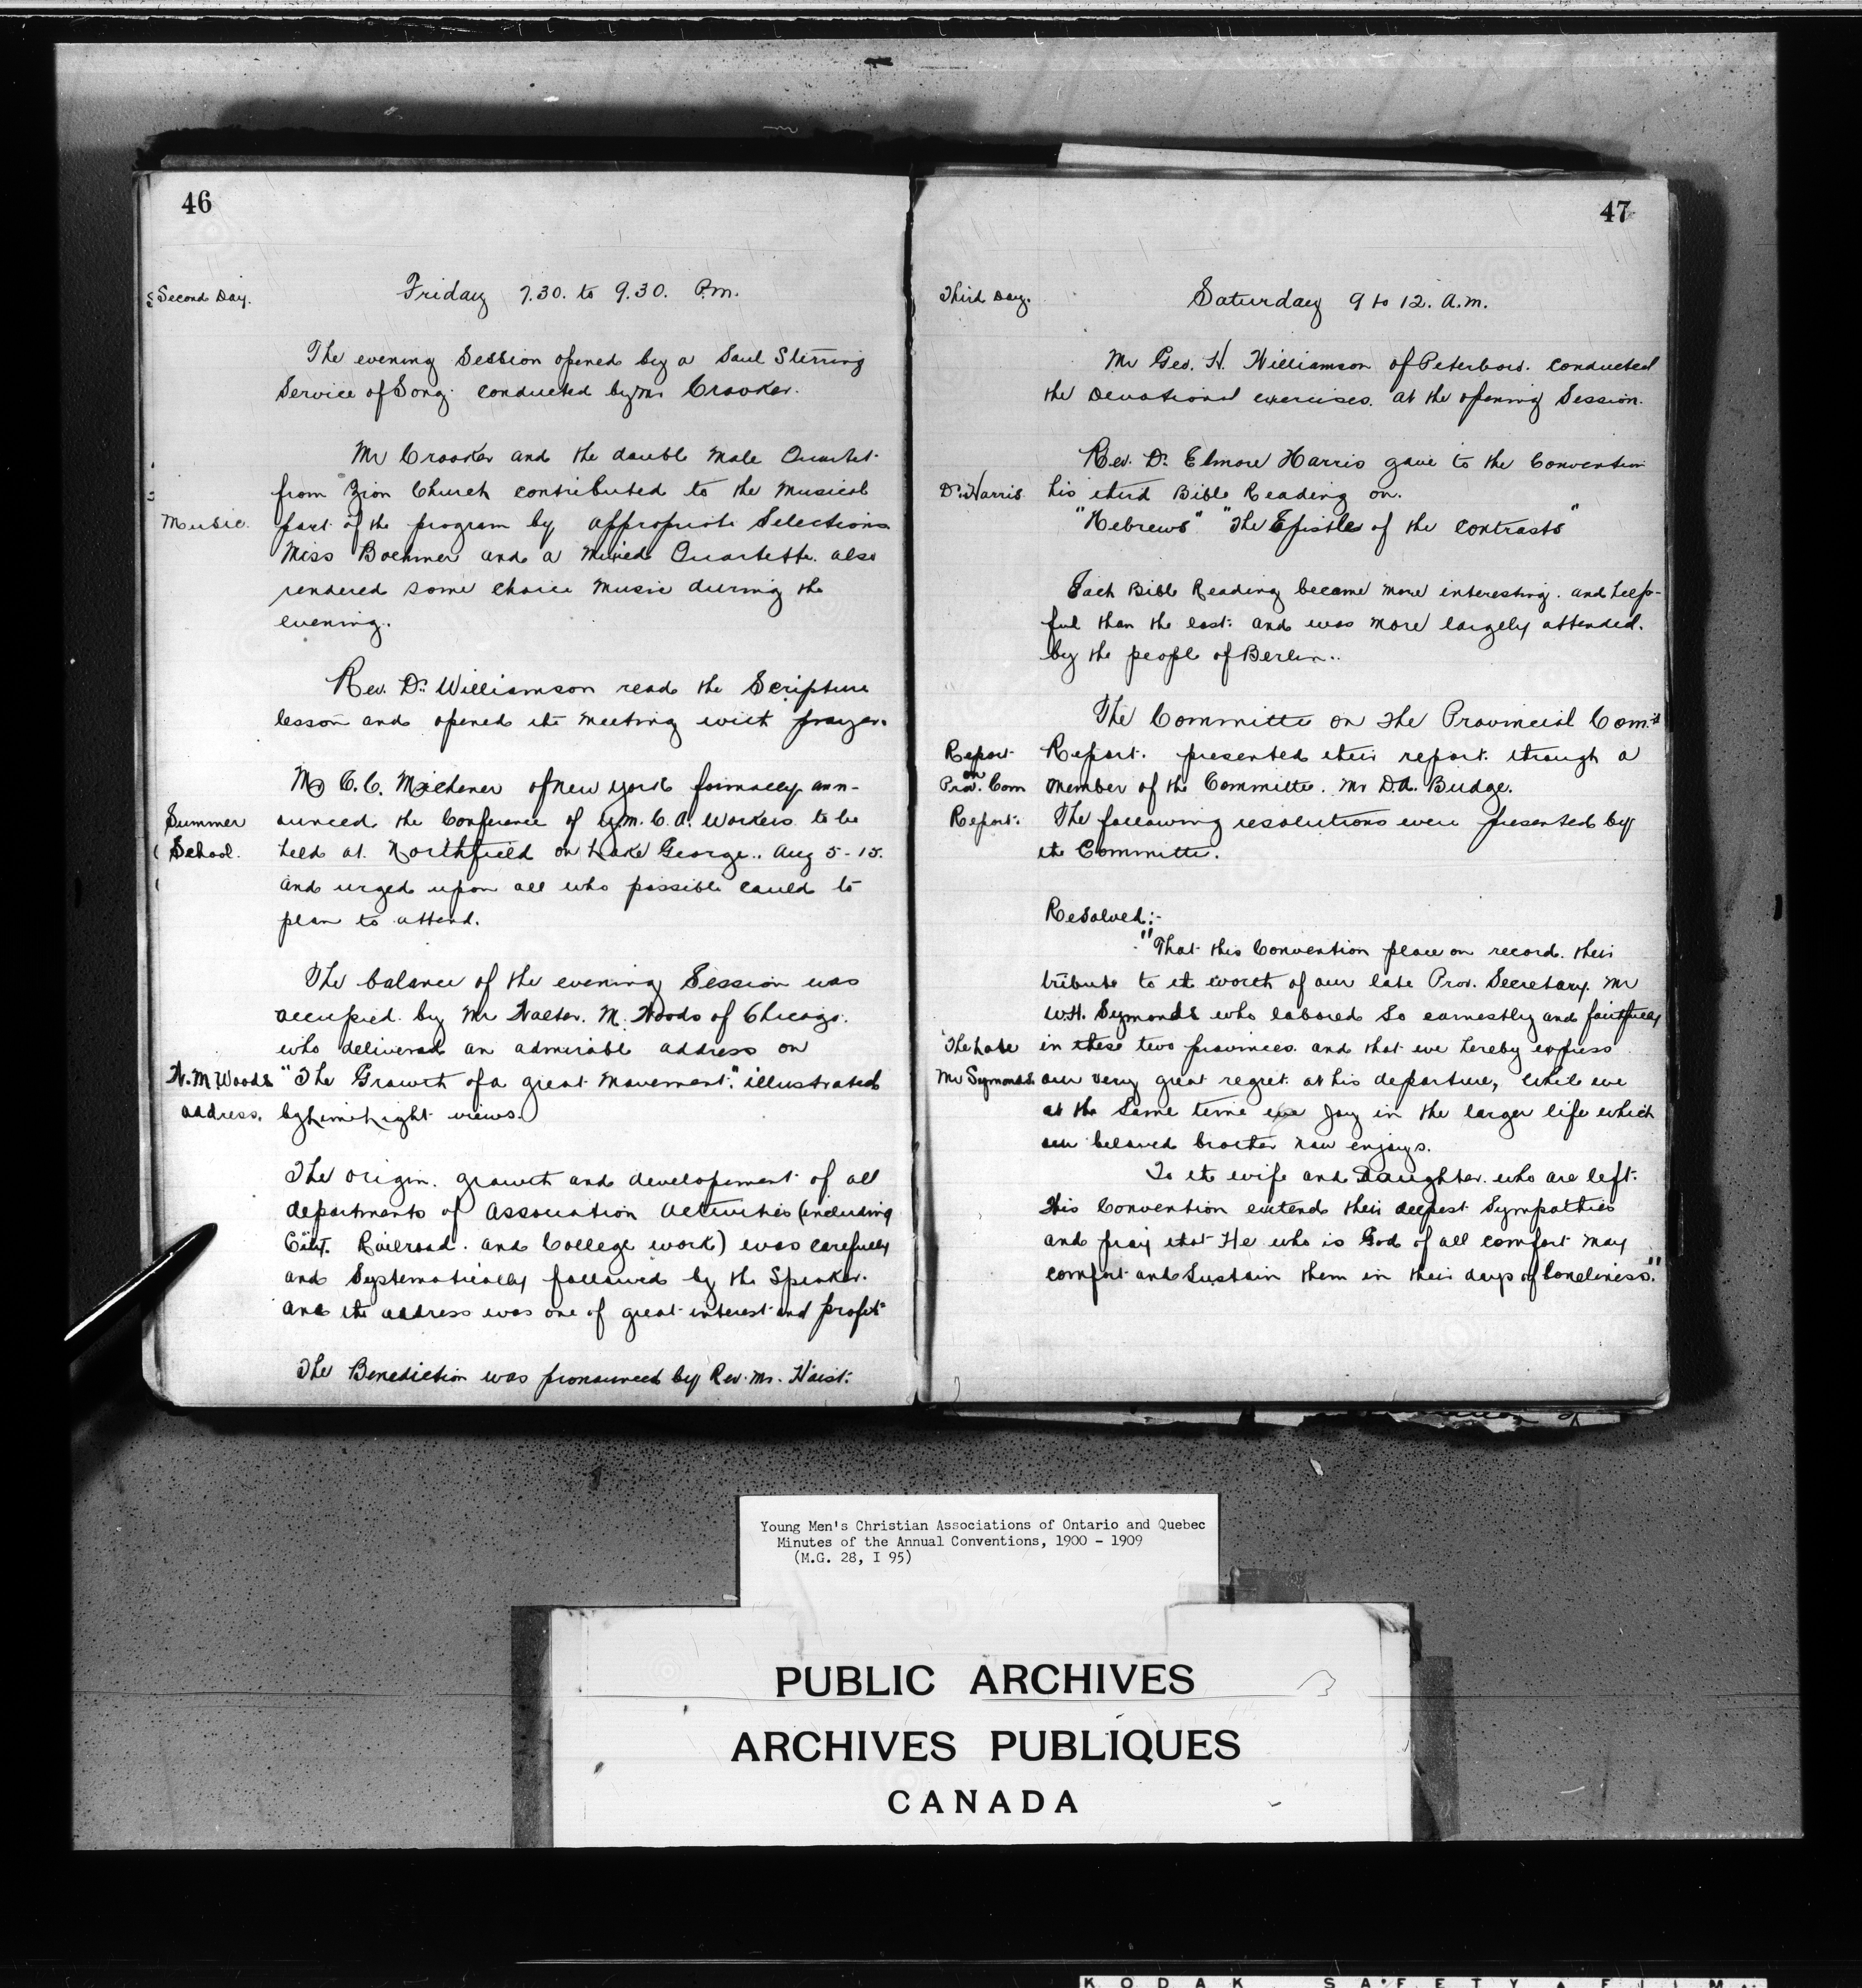 46
Second Day.
Friday 7.30. to 9.30. P.m.
The evening Session opened by a Soul Stirring
Service of Song. conducted by Mr Crooker.
Mr Crooker and the double Male Quartet
from Zion Church contributed to the Musical
Music. part of the program by appropriate Selections
Miss Boehmer and a Mixed Quartette. also
rendered some choice Music during the
evening.
Rev. Dr. Williamson read the Scripture
lesson and opened the Meeting with prayer.
Mr C. C. Michener of New York formally ann-
Summer ounced the Conference of Y.M.C.A. Workers to be
School. held at Northfield on Lake George.. Aug 5-15.
and urged upon all who possible could to
plan to attend.
The balance of the evening Session was
occupied by Mr Walter. M. Woods of Chicago.
who delivered an admirable address on
W. M Woods "The Growth of a great Movement." illustrated
address. by Lime Light views.
The origin. growth and developement of all
departments of Association Activities (including
City. Railroad. and College work) was carefully
and Systematically followed by the Speaker.
and the address was one of great interest and profit
The Benediction was pronounced by Rev. Mr. Haist.
47
Third Day.
Saturday 9 to 12. A.m.
Mr Geo. H. Williamson of Peterboro. conducted
the Devotional exercises. at the opening Session.
Rev. Dr. Elmore Harris gave to the Convention
Dr. Harris his third Bible Reading on.
"Hebrews" "The Epistle of the contrasts"
Each Bible Reading became more interesting. and help-
ful than the last. and was more largely attended.
by the people of Berlin..
The Committe on the Provincial Com.
Report Report. presented their report. through a
on
Prov. Com member of the Committe. Mr D.A. Budge.
Report. The following resolutions were presented by
the Committe.
Resolved:-
"That this Convention place on record. their
tribute to the worth of our late Prov. Secretary. Mr
W.H. Symonds who labored so earnestly and faithfully
The Late in these two provinces. and that we hereby express
Mr Symonds. our very great regret at his departure, while we
at the same time joy in the larger life which
our beloved brother now enjoys.
To the wife and Daughter. who are left.
this Convention extends their deepest Sympathies
and pray that He who is God of all comfort may
comfort and Sustain them in their days of loneliness."
Young Men's Christian Associations of Ontario and Quebec
Minutes of the Annual Conventions, 1900 - 1909
(M.G. 28, I 95)
PUBLIC ARCHIVES
ARCHIVES PUBLIQUES
CANADA
KODAK SAFETY FILM